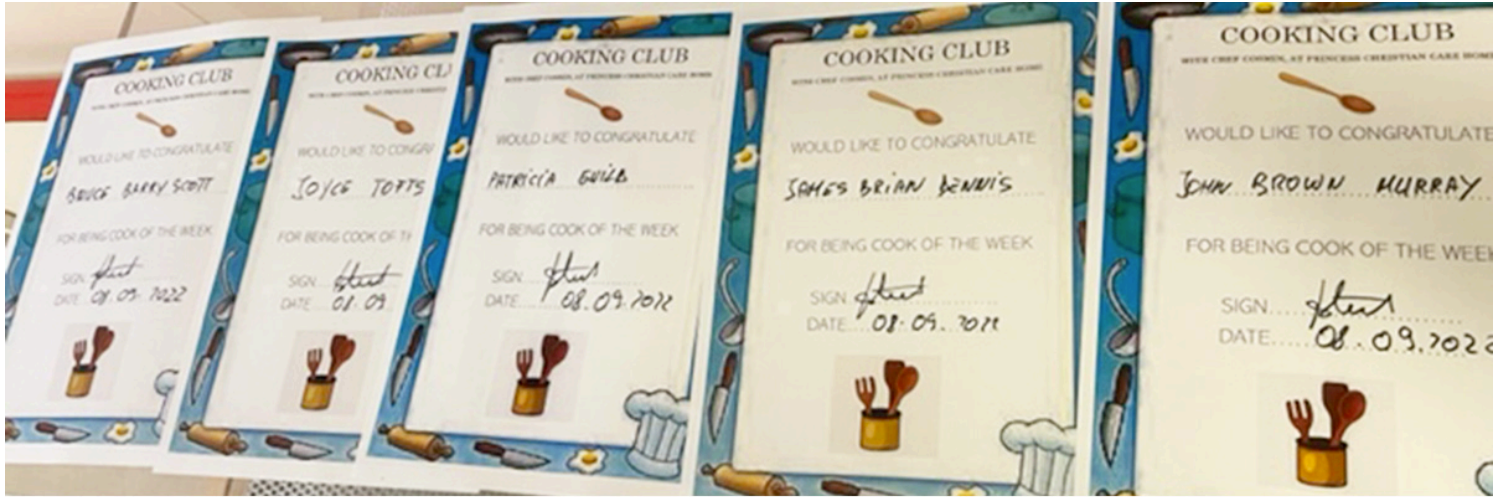 COOKING CLUB
WITH CHEF COSMIN, AT PRINCESS CHRISTIAN CARE HOME
WOULD LIKE TO CONGRATULATE
BRUCE BARRY SCOTT
FOR BEING COOK OF THE WEEK
SIGN
DATE 08.09.2022
COOKING CL
WITH CHEF COSMIN, AT PRINCESS
WOULD LIKE TO CONGR
JOYCE TOFTS
FOR BEING COOK OF TH
SIGN
DATE 08.09
COOKING CLUB
WITH CHEF COSMIN, AT PRINCESS CHRISTIAN CARE HOME
WOULD LIKE TO CONGRATULATE
PATRICIA GUILD
FOR BEING COOK OF THE WEEK
SIGN
DATE 08.09.2022
COOKING CLUB
WITH CHEF COSMIN, AT PRINCESS CHRISTIAN CARE HOME
WOULD LIKE TO CONGRATULATE
JAMES BRIAN DENNIS
FOR BEING COOK OF THE WEEK
SIGN
DATE 08.09.2022
COOKING CLUB
WITH CHEF COSMIN, AT PRINCESS CHRISTIAN CARE HOME
WOULD LIKE TO CONGRATULATE
JOHN BROWN MURRAY
FOR BEING COOK OF THE WEEK
SIGN
DATE 08.09.2022